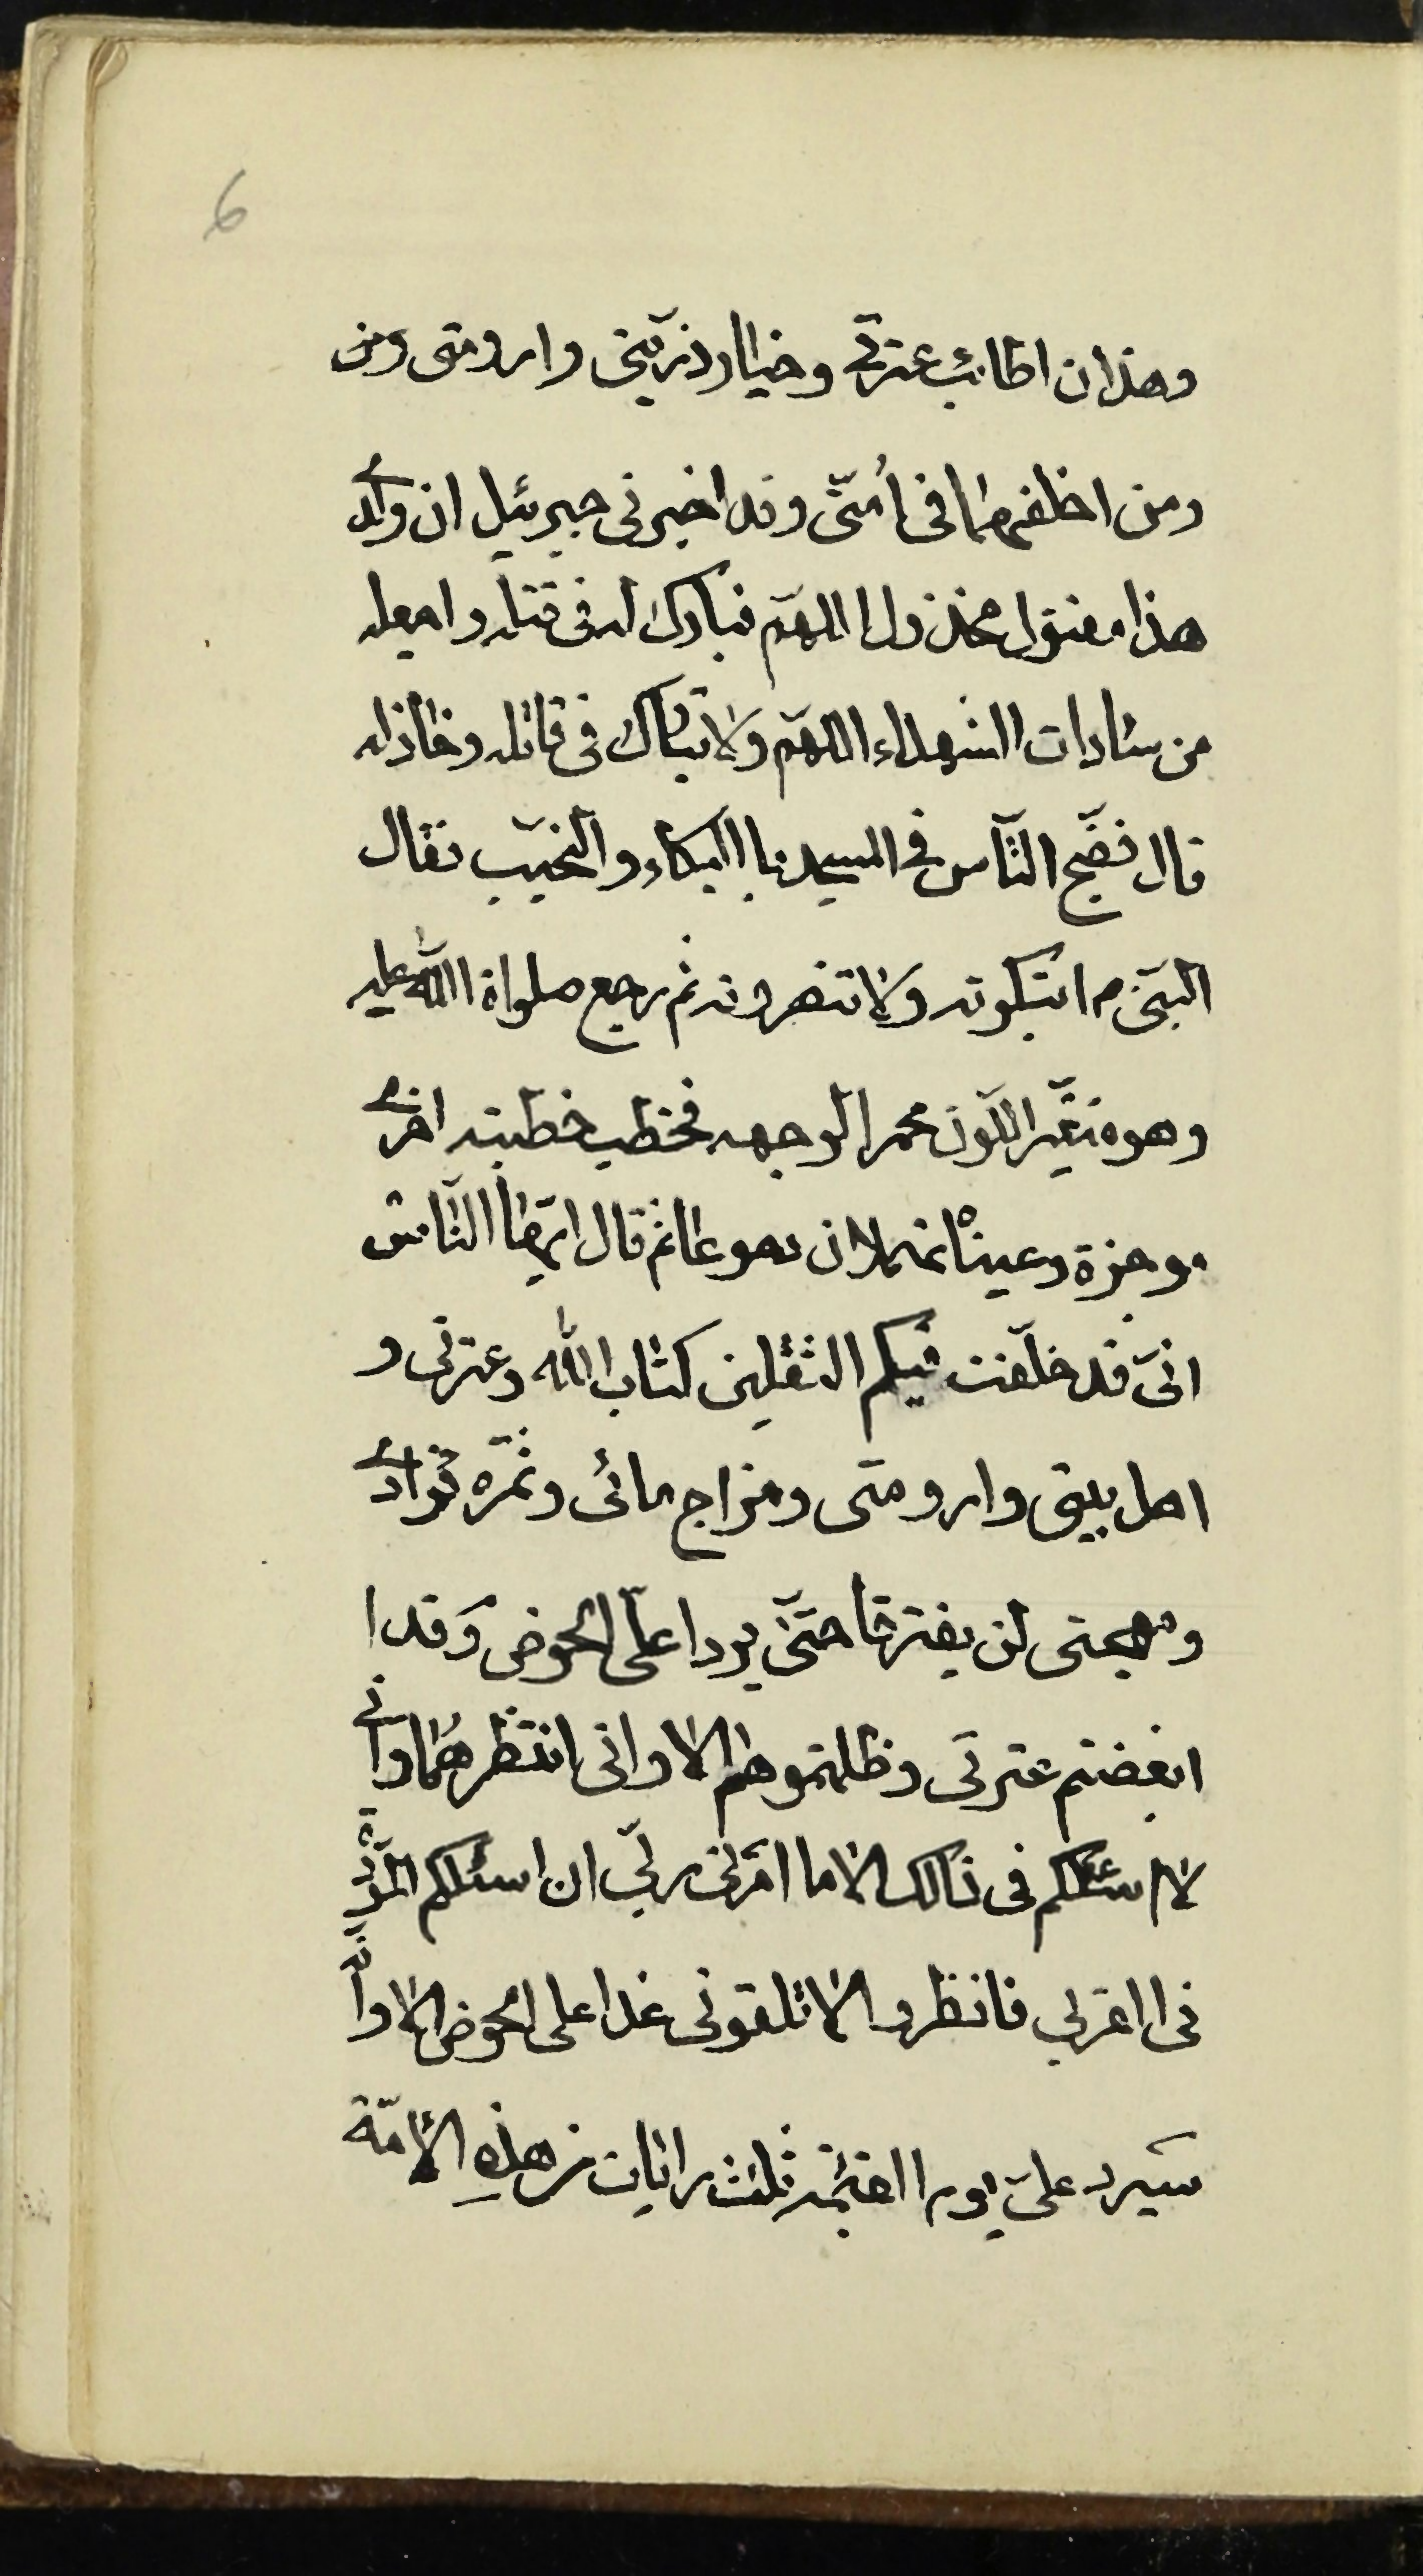 6
وهذان اطائب عترتي وخيار ذريّتي وارومتى ومن
ومن اخلفهما فى أمّتى وقد اخبرنى جبرئيل ان ولدي
هذا مقتول مخذول اللهمّ فبارك له فى قتله واجعله
من سادات الشهداء اللهمّ ولا تبارك فى قاتله وخاذله
قال فضّج النّاس في المسجد بالبكاء والنحيب فقال
النبيّ م اتبكونه ولا تنصرونه ثم رجع صلواة اللّه عليه
وهو متغيّر اللّون محمر الوجهه فخطب خطبته اخرى
موجزة وعيناه تهملان دموعا ثم قال ايّها النّاس
انىّ قد خلّفت فيكم الثقلين كتاب اللّه وعترتى و
اهل بيتى وارومتى ومزاج مائى وثمرة فؤادي
ومهجتى لن يفترقا حتّى يردا علىّ الحوض وقد ا
ابغضتم عترتى وظلمتموهم الا وانى انتظرهما وانى
لا اسئلكم فى ذالك الا ما امرنى ربّي ان اسئلكم المودّة
فى القربى فانظروا الا تلقونى غدا على الحوض الا وانّه
سيرد علىّ يوم القيمة ثلث رايات من هذه الأمّة